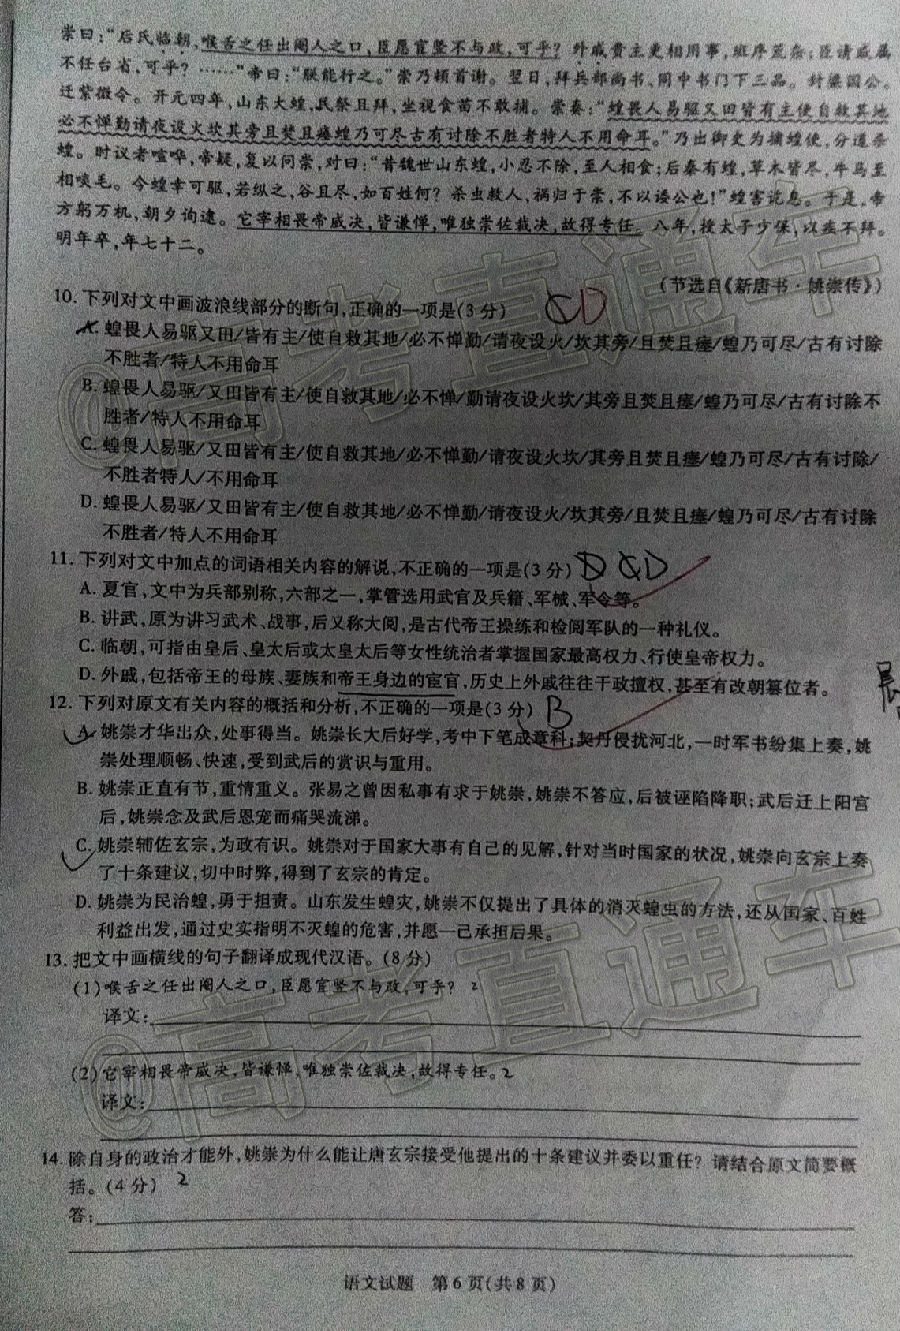 崇曰:“后氏临朝,喉舌之任出阉人之口,臣愿宦竖不与政,可乎?外戚贵主更相用事,班序荒杂;臣请戚属
不任台省,可乎?……”帝曰:“朕能行之。”崇乃顿首谢。翌日,拜兵部尚书、同中书门下三品。封梁国公。
迁紫微令。开元四年,山东大蝗,民祭且拜,坐视食苗不敢捕。崇奏:“蝗畏人易驱又田皆有主使自救其地
必不惮勤请夜设火坎其旁且焚且瘗蝗乃可尽古有讨除不胜者特人不用命耳。”乃出御史为捕蝗使,分道杀
蝗。时议者喧哗,帝疑,复以问崇,对曰:“昔魏世山东蝗,小忍不除,至人相食;后秦有蝗,草木皆尽,牛马至
相啖毛。今蝗幸可驱,若纵之,谷且尽,如百姓何?杀虫救人,祸归于崇,不以诿公也!”蝗害讫息。于是,帝
方躬万机,朝夕询逮。它宰相畏帝威决,皆谦惮,唯独崇佐裁决,故得专任。八年,授太子少保,以疾不拜。
明年卒,年七十二。
(节选自《新唐书·姚崇传》)
10. 下列对文中画波浪线部分的断句,正确的一项是(3分) CD
A. 蝗畏人易驱又田/皆有主/使自救其地/必不惮勤/请夜设火/坎其旁/且焚且瘗/蝗乃可尽/古有讨除
不胜者/特人不用命耳
B. 蝗畏人易驱/又田皆有主/使自救其地/必不惮/勤请夜设火坎/其旁且焚且瘗/蝗乃可尽/古有讨除不
胜者/特人不用命耳
C. 蝗畏人易驱/又田皆有主/使自救其地/必不惮勤/请夜设火坎/其旁且焚且瘗/蝗乃可尽/古有讨除/
不胜者特人/不用命耳
D. 蝗畏人易驱/又田皆有主/使自救其地/必不惮勤/请夜设火/坎其旁/且焚且瘗/蝗乃可尽/古有讨除
不胜者/特人不用命耳
11. 下列对文中加点的词语相关内容的解说,不正确的一项是(3分) D CD
A. 夏官,文中为兵部别称,六部之一,掌管选用武官及兵籍、军械、军令等。
B. 讲武,原为讲习武术、战事,后又称大阅,是古代帝王操练和检阅军队的一种礼仪。
C. 临朝,可指由皇后、皇太后或太皇太后等女性统治者掌握国家最高权力、行使皇帝权力。
D. 外戚,包括帝王的母族、妻族和帝王身边的宦官,历史上外戚往往干政擅权,甚至有改朝篡位者。
12. 下列对原文有关内容的概括和分析,不正确的一项是(3分) B
A. 姚崇才华出众,处事得当。姚崇长大后好学,考中下笔成章科;契丹侵扰河北,一时军书纷集上奏,姚
崇处理顺畅、快速,受到武后的赏识与重用。
B. 姚崇正直有节,重情重义。张易之曾因私事有求于姚崇,姚崇不答应,后被诬陷降职;武后迁上阳宫
后,姚崇念及武后恩宠而痛哭流涕。
C. 姚崇辅佐玄宗,为政有识。姚崇对于国家大事有自己的见解,针对当时国家的状况,姚崇向玄宗上奏
了十条建议,切中时弊,得到了玄宗的肯定。
D. 姚崇为民治蝗,勇于担责。山东发生蝗灾,姚崇不仅提出了具体的消灭蝗虫的方法,还从国家、百姓
利益出发,通过史实指明不灭蝗的危害,并愿一己承担后果。
13. 把文中画横线的句子翻译成现代汉语。(8分)
(1)喉舌之任出阉人之口,臣愿宦竖不与政,可乎? 2
译文:
(2)它宰相畏帝威决,皆谦惮,唯独崇佐裁决,故得专任。2
译文:
14. 除自身的政治才能外,姚崇为什么能让唐玄宗接受他提出的十条建议并委以重任?请结合原文简要概
括。(4分) 2
答:
语文试题 第6页(共8页)
@高考直通车
@高考直通车